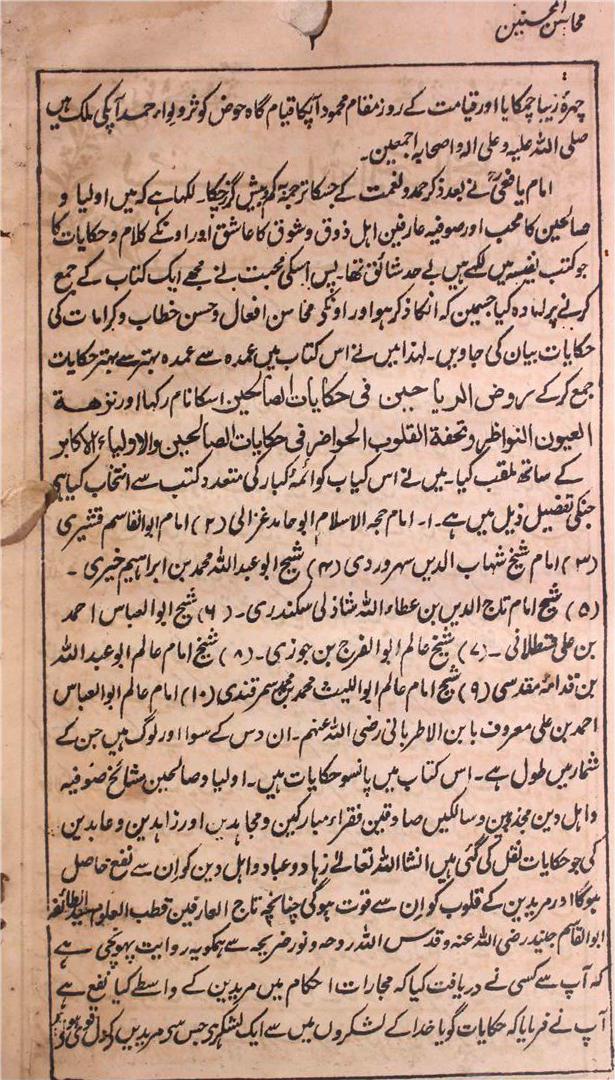 محاسن المحسنین
۲
چہرۂ زیبا چمکایا اور قیامت کے روز مقام محمود آپکا قیام گاہ حوض کوثر و لواء حمد آپکی ملک ہیں
صلی اللہ علیہ وعلی الہ واصحابہ اجمعین۔
امام یافعیؒ نے بعد ذکر حمد و نعت کے جسکا ترجمہ کم و بیش گزر چکا۔ لکھا ہے کہ میں اولیا و
صالحین کا محب اور صوفیہ عارفین اہل ذوق و شوق کا عاشق اور اونکے کلام و حکایات کا
جو کتب نفیسہ میں لکھے ہیں بے حد شائق تھا۔ پس اسکی محبت نے مجھے ایک کتاب کے جمع
کرنے پر امادہ کیا جسمین کہ انکا ذکر ہو اور اونکو محاسن افعال و حسن خطاب و کرامات کی
حکایات بیان کی جاویں۔ لہذا میں نے اس کتاب میں عمدہ سے عمدہ بہتر سے بہتر حکایات
جمع کر کے روض الریاحین فی حکایات الصالحین اسکا نام رکھا اور نزھة
العیون النواظر وتحفة القلوب الحواضر فی حکایات الصالحین والاولیاء الاکابر
کے ساتھ ملقب کیا۔ میں نے اس کیاب کو ائمۂ کبار کی متعدد کتب سے انتخاب کیا ہے
جنکی تفصیل ذیل میں ہے۔ ۱۔ امام حجہ الاسلام ابو حامد غزالی (۲) امام ابو القاسم قشیری
(۳) امام شیخ شہاب الدین سہروردی (۴) شیخ ابو عبد اللہ محمد بن ابراہیم خیری ۔
(۵) شیخ امام تاج الدین بن عطاء اللہ شاذلی سکندری۔ (۶) شیخ ابو العباس احمد
بن علی قسطلانی ۔ (۷) شیخ عالم ابو الفرج بن جوزی۔ (۸) شیخ امام عالم ابو عبد اللہ
بن قدامہ مقدسی (۹) شیخ امام عالم ابو اللیث محمد سمرقندی (۱۰) امام عالم ابو العباس
احمد بن علی معروف بابن الاطربانی رضی اللہ عنہم۔ ان دس کے سوا اور لوگ ہیں جن کے
شمار میں طول ہے۔ اس کتاب میں پانسو حکایات ہیں۔ اولیا و صالحین مشائخ صوفیہ
و اہل دین مجذوبین و سالکیں صادقین فقراء مبارکین و مجاہدین اور زاہدین و عابدین
کی جو حکایات نقل کی گئی ہیں انشا اللہ تعالے زہاد و عباد و اہل دین کو ان سے نفع حاصل
ہوگا اور مریدین کے قلوب کو ان سے قوت ہوگی چنانچہ تاج العارفین قطب العلوم سید الطائفہ
ابو القاسم جنید رضی اللہ عنہ و قدس اللہ روحہ و نور ضریحہ سے ہمکو یہ روایت پہونچی ہے
کہ آپ سے کسی نے دریافت کیا کہ مجارات احکام میں مریدین کے واسطے کیا نفع ہے
آپ نے فرمایا کہ حکایات گویا خدا کے لشکروں میں سے ایک لشکر ہی جس سی مریدین کا دل قوی